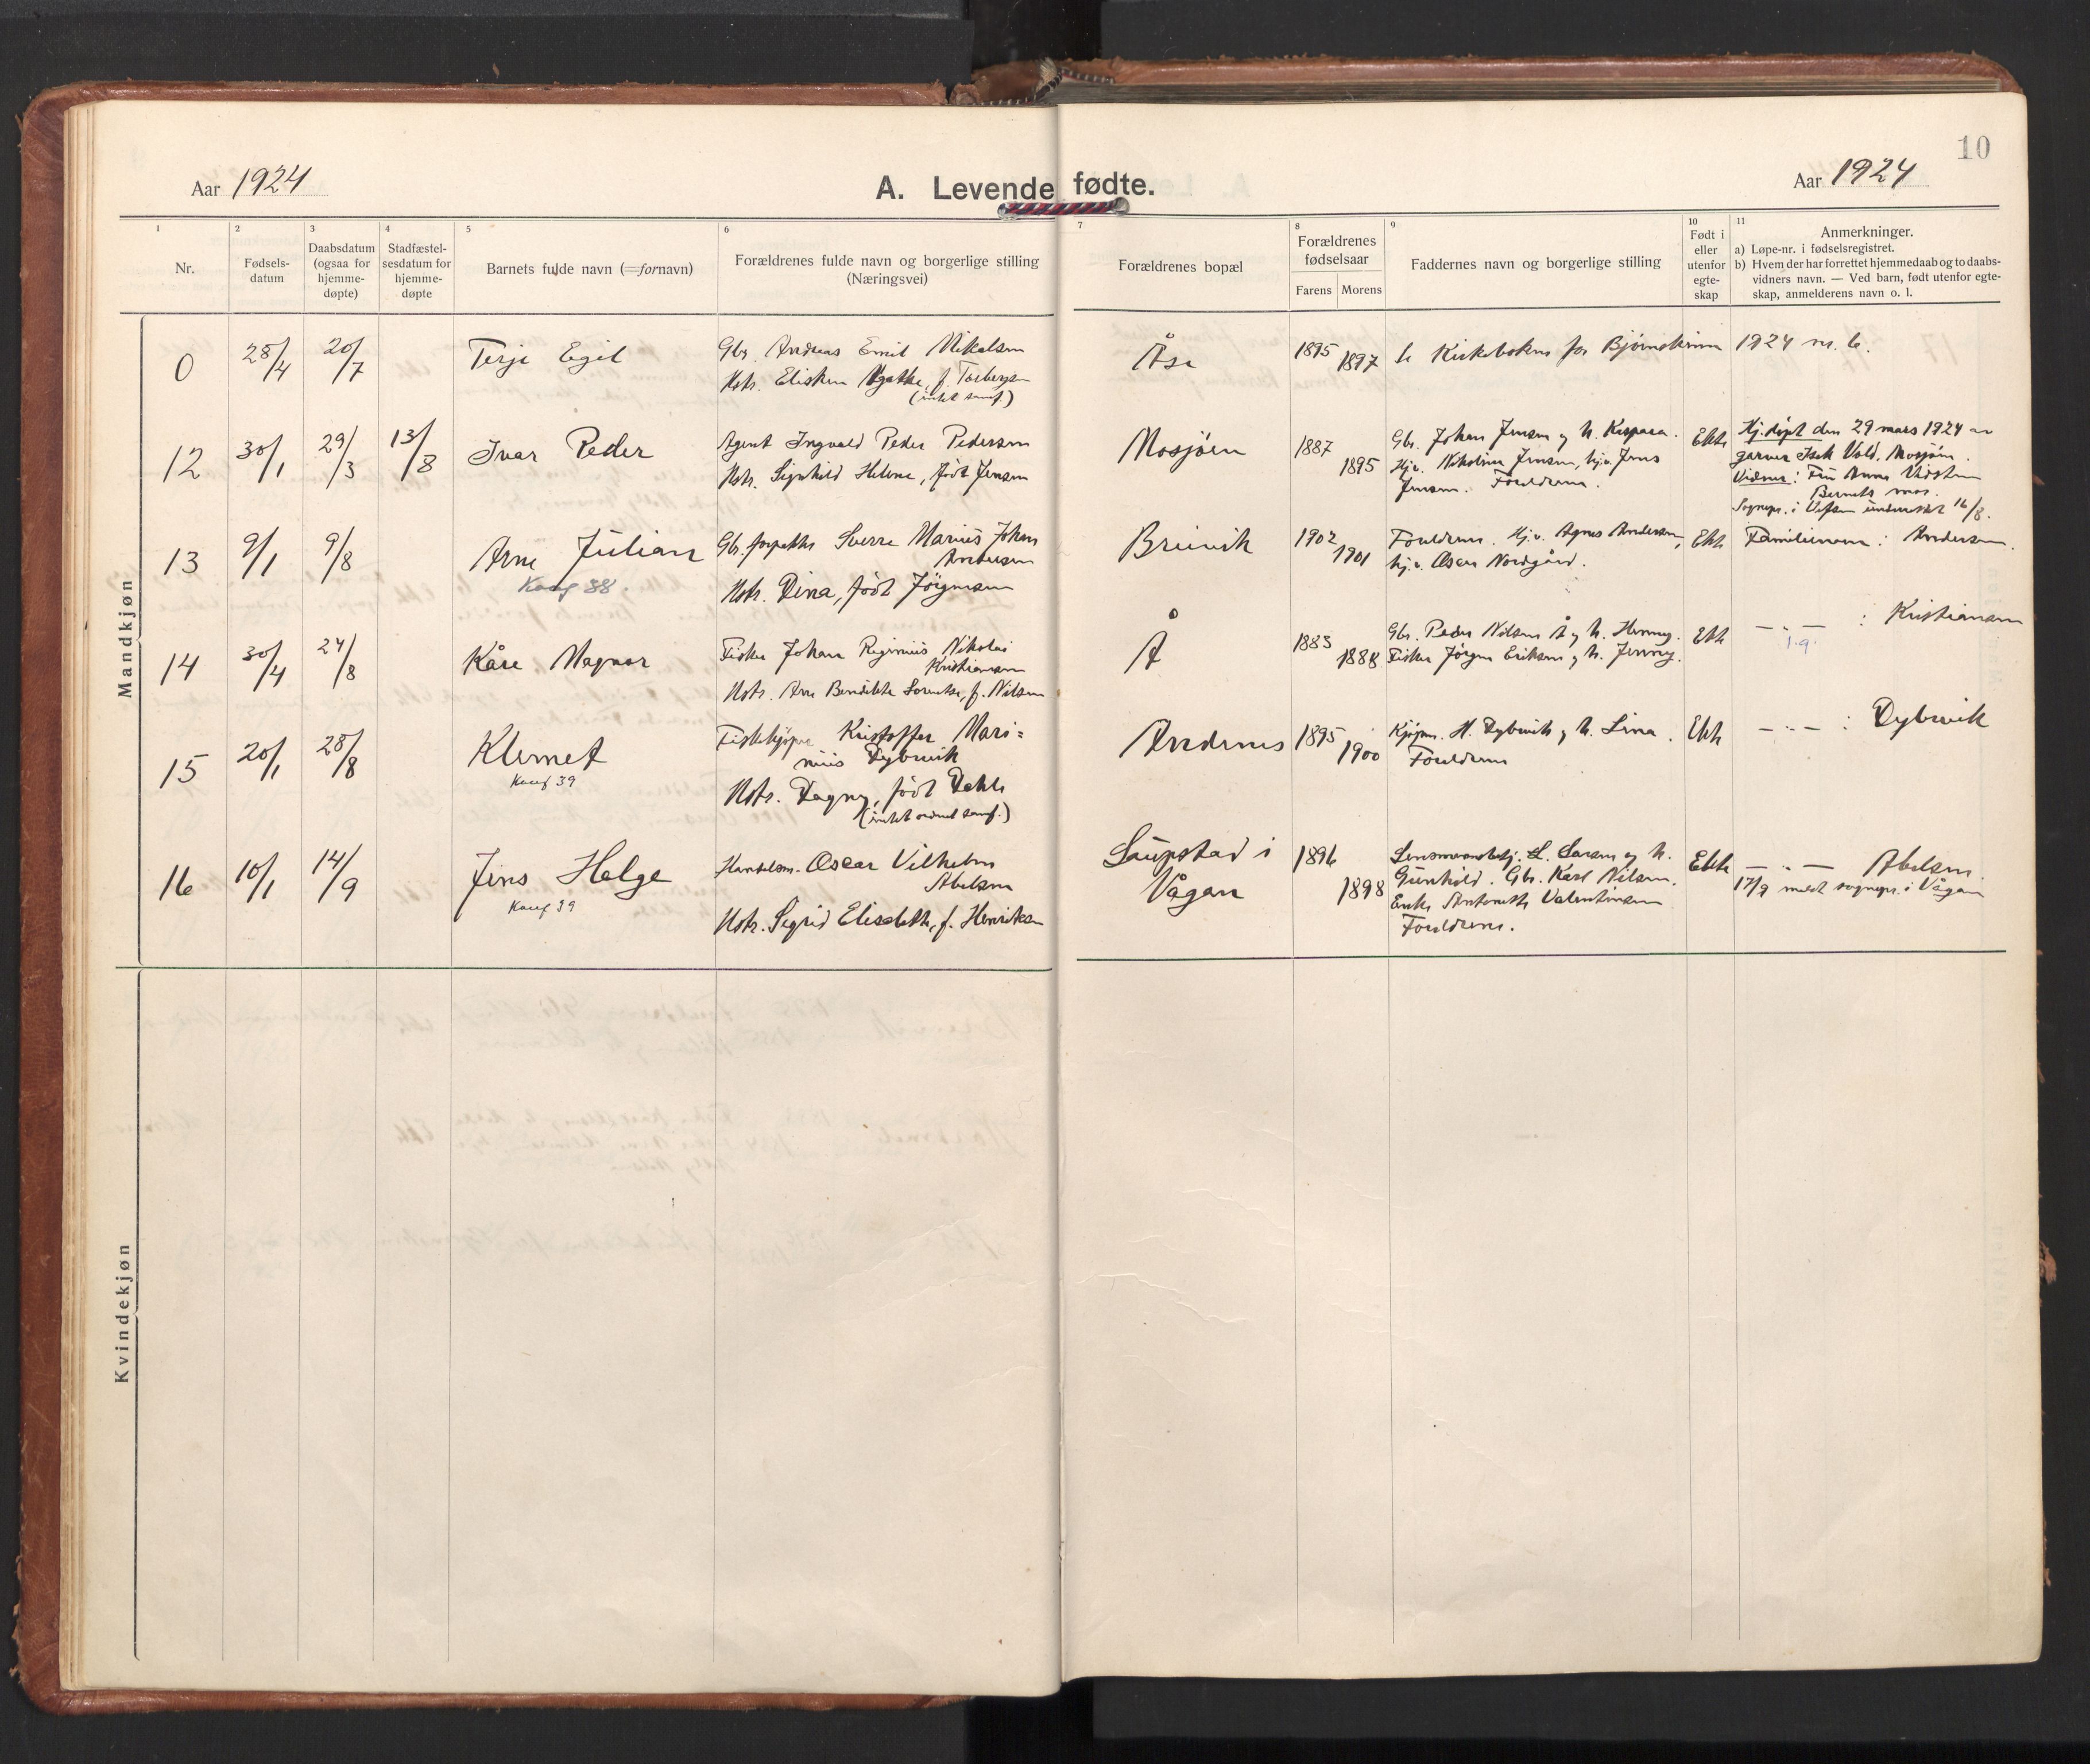 10
Aar 1924
A. Levende fødte.
Aar 1924
1 2 3 4 5 6 7 8 9 10 11
Nr.
Fødsels-
datum
Daabsdatum
(ogsaa for
hjemme-
døpte)
Stadfæstel-
sesdatum for
hjemme-
døpte
Barnets fulde navn (=fornavn)
Forældrenes fulde navn og borgerlige stilling
(Næringsvei)
Forældrenes bopæl
Forældrenes
fødselsaar
Farens Morens
Faddernes navn og borgerlige stilling
Født i
eller
utenfor
egte-
skap
Anmerkninger.
a) Løpe-nr. i fødselsregistret.
b) Hvem der har forrettet hjemmedaab og to daabs-
vidners navn. — Ved barn, født utenfor egte-
skap, anmelderens navn o. l.
Mandkjøn
0 28/4 20/7 Terje Egil
Gbr. Andreas Emil Nikolsen
Hstr. Agathe, f. Torbergsen
Åse 1895 1897 Se Kirkeboken for Bjørnskinn 1924 nr. 6.
12 30/1 29/3 13/8 Ivar Peder
Agent Ingvald Peder Pedersen
Hstr. Signhild Helene, født Jensen
Mosjøen 1887 1895
Gbr. Johan Jensen og h. Kaspara.
Hjv. Nikoline Jensen, hjv. Jens
Jensen. Foreldrene.
Ekte
Hj.døpt den 29 mars 1924 av
garver Isak Vold, Mosjøen.
Vidner: Fru Anna
Barnets mor.
Sognepr. i Vefsn underrettet 16/8.
13 9/1 9/8 Arne Julian
Konf 38.
Gbr. forpakter Sverre Marius Johan
Andersen
Hstr. Dina, født Jörgensen
Breivik 1902 1901
Foreldrene. Hjv. Agnes Andersen,
hj.v. Oscar Nordgård.
Ekte Familienavn: Andersen.
14 30/4 24/8 Kåre Magnar
Fisker Johan Reginius Nikolai
Kristiansen
Hstr. Ane Bendikte Lorentse, f. Nilsen
Å 1883 1888
Gbr. Peder Nilsen Å og h. Henny.
Fisker Jörgen Eriksen og h. Jenny.
Ekte — " — : Kristiansen
15 20/1 28/8 Klemet
Konf 39
Fiskekjöper Kristoffer Mari=
nius Dybwik
Hstr. Dagny, født Dahle
(intet ordnet samf.)
Andenes 1895 1900
Kjöpm. H. Dybwik og h. Lina.
Foreldrene
Ekte — " — : Dybwik
16 10/1 14/9 Jens Helge
Konf 39
Handelsm. Oscar Vilhelm
Abelsen
Hstr. Sigrid Elisabeth, f. Henriksen
Laupstad i
Vågan
1896 1898
Lensmannbetj. L. Larsen og h.
Gunhild. Gbr. Karl Nilsen.
Enke Antonette Valentinsen
Foreldrene.
Ekte — " — Abelsen.
17/9 meldt sognepr. i Vågan
Kvindekjøn